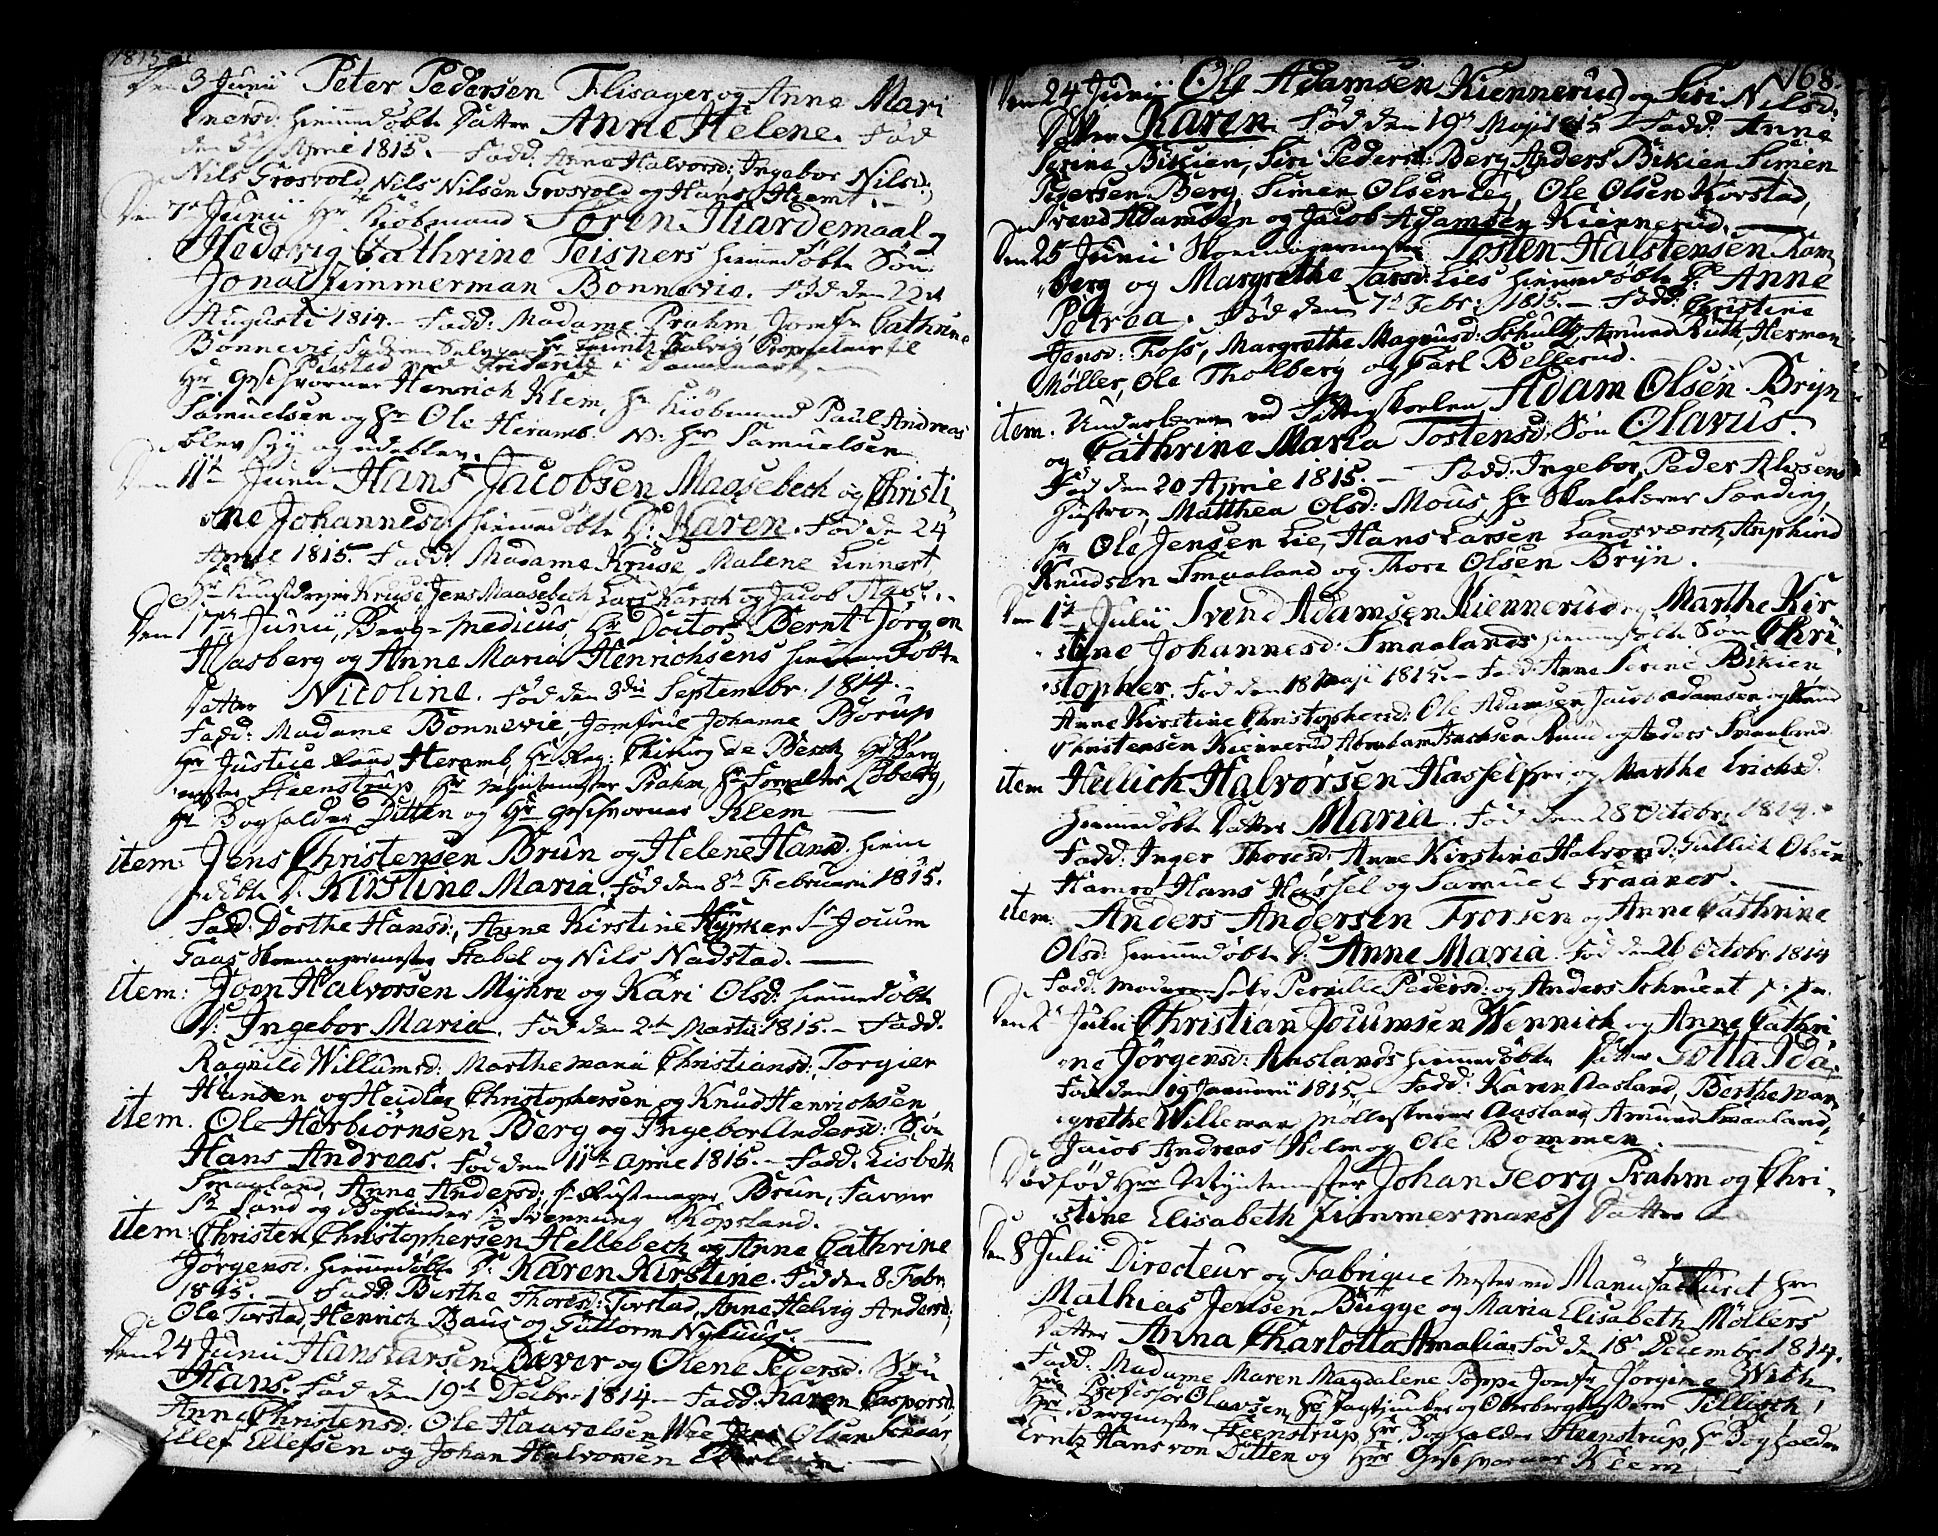 1815
Den 3 Junii Peter Pedersen Flisager og Anne Mari
Enersd: hiemmedøbte Datter Anne Helene. Fød
den 5 April 1815. – Fadd: Anne Halvorsd: Ingebor Nilsd:
Nils Grosvold, Nils Nilsen Grosvold og Hans Hiemt. –
Den 7de Junii Hr Kiøbmand Søren Hiardemaal og
Hedevig Cathrine Teisners hiemmedøbte Søn
Jonas Zimmerman Bonnevie. Fød den 22de
Augusti 1814. – Fadd: Madame Prahm, Jomfr Cathrine
Bonnevie,
Hr Geschvorner Henrich Klem, Hr Kiøbmand Paul Andreas
Samuelsen og Hr Ole Heramb. N: Hr Samuelsen
blev syg og udeblev.
Den 11te Junii Hans Jacobsen Maasebech og Christi
ne Johannesd: hiemmedøbte D: Karen. Fød den 24
April 1815. Fadd: Madame Kruse, Malene Linnert
Hr Kunstdreier Kruse, Jens Maasebech, Lars Karsch og Jacob Aas.
Den 17de Junii, Berg-Medicus, Hr Doctor Bernt Jørgen
Hasberg og Anne Maria Henrichsens hiemmedøbte
Datter Nicoline. Fød den 3die Septembr: 1814.
Fadd: Madame Bonnevie, Jomfrue Johanne Borup
Hr Justice Raad Heramb, Hr Reg: Chirurg de Besch, Hr Berg
mester Steenstrup, Hr Myntmester Prahm, Hr Forvalter Løberg,
Hr Bogholder Ditten og Hr Geschvorner Klem –
item: Jens Christensen Brun og Helene Hansd: hiem
medøbte D: Kirstine Maria, Fød den 8de Februari 1815.
Fadd: Dorthe Hansd:, Anne Kirstine Hyrker Sr Jocum
Gaas Stemmagermester Stabel og Nils Nadstad. –
item: Joen Halvorsen Myhre og Kari Olsd: hiemmedøbte
D: Ingebor Maria. Fød den 2de Martii 1815. – Fadd:
Ragnild Willumsd: Marthe Marii Christiansd:, Torgier
Hansen og Heidler Christophersen og Knud Henrichsen
item. Ole Herbiørnsen Berg og Ingebor Andersd: Søn
Hans Andreas. Fød den 11te April 1815. – Fadd: Lisbeth
Smaaland, Anne Andersd:, Sr Rustmager Brun, Farver
Sr Sand og Bogbinder Svenning Kopsland.
item: Christen Christophersen Hellebech og Anne Cathrine
Jørgensd: hiemmedøbte D: Karen Kirstine. Fød den 8 Febr:
1815. – Fadd: Berthe Thoresd: Torstad, Anne Helvig Andersd:,
Ole Torstad, Henrich Baus og Guttorm Nyhuus. –
Den 24 Junii Hans Larsen Bæver og Olene Pedersd: Søn
Hans. Fød den 19de Decbr: 1814 – Fadd: Karen Caspersd:
Anne Christensd: Ole Haavelsen Wee, Jens Olsen Skaar,
Ellef Ellefsen og Johan Halvorsen –
168.
Den 24 Junii Ole Adamsen Kiennerud og Siri Nilsd:
Datter Karen. Fød den 19de Maji 1815 – Fadd: Anne
Serine Bikien, Siri Pedersd: Berg, Anders Bikien, Simen
Pedersen Berg, Simen Olsen Lie, Ole Olsen Korstad,
Svend Adamsen og Jacob Adamsen Kiennerud. –
Den 25 Junii Stemmagermester Tosten Halstensen Ram
berg og Margrethe Larsd: Lies hiemmedøbte D: Anne
Petrea. Fød den 7de Febr: 1815. – Fadd: Christine
Jensd: Foss, Margrethe Magnusd: Schultz, Amund Ruth, Herman
Møller, Ole Tholberg og Carl Bellerud.
item. Underlærer ved Pigeskolen Adam Olsen Bryn
og Cathrine Maria Tostensd: Søn Olavus.
Fød den 20 April 1815. – Fadd: Ingebor, Peder Alvsens
Hustroe, Matthea Olsd: Mous, Hr Skolelærer Sanding,
Hr Ole Jensen Lie, Hans Larsen Landsværch, Anphind
Knudsen Smaaland og Thore Olsen Bryn.
Den 1te Julii Svend Adamsen Kiennerud og Marthe Kir
stine Johannesd: Smaalands hiemmedøbte Søn Chri
stopher. Fød den 18 Maji 1815. – Fadd: Anne Serine Bikien
Anne Kirstine Christophersd: Ole Adamsen, Jacob Adamsen og
Christensen Kiennerud, Abraham Isachsen Ruud og Anders Smaaland.
item Hellich Halvorsen Hassel og Marthe Erichsd:
hiemmedøbte Datter Maria. Fød den 28 Octobr: 1814.
Fadd: Inger Thoresd: Anne Kirstine Halvorsd: Gullich Olsen
Hamre, Hans Hassel og Samuel Graaner. –
item: Anders Andersen Frorsen og Anne Cathrine
Olsd: hiemmedøbte D: Anne Maria. Fød den 26 Octobr: 1814
Fadd: Moderen selv, Pernille Pedersd: og Anders Schmient
Den 2de Julii Christian Jocumsen Wennich og Anne Cathri
ne Jørgensd: Aaslands hiemmedøbte Datter Gotta Ida.
Fød den 19 Januarii 1815. – Fadd: Karen Aasland, Berthe Mar
grethe Willeman, Møllestriver Aasland, Amund Smaaland,
Jacob Andreas Holm og Ole Bommen. –
Dødfød Hr Myntmester Johan Georg Prahm og Chri
stine Elisabeth Zimmermans Datter –
Den 8 Julii Directeur og Fabrique Mester ved Manufacturet Hr
Mathias Jensen Bugge og Maria Elisabeth Møllers
Datter Anna Charlotta Amalia. Fød den 18 Decembr: 1814.
Fadd: Madame Maren Magdalene Poppe, Jomfr Jørgine With
Hr Professor Olavsen, Hr Jagtjunker og Oberbergamts Tillisch,
Hr Bergmester Steenstrup, Hr Bogholder Steenstrup, Hr Bogholder
Erntz Hans von Ditten og Hr Geschvorner Klem –